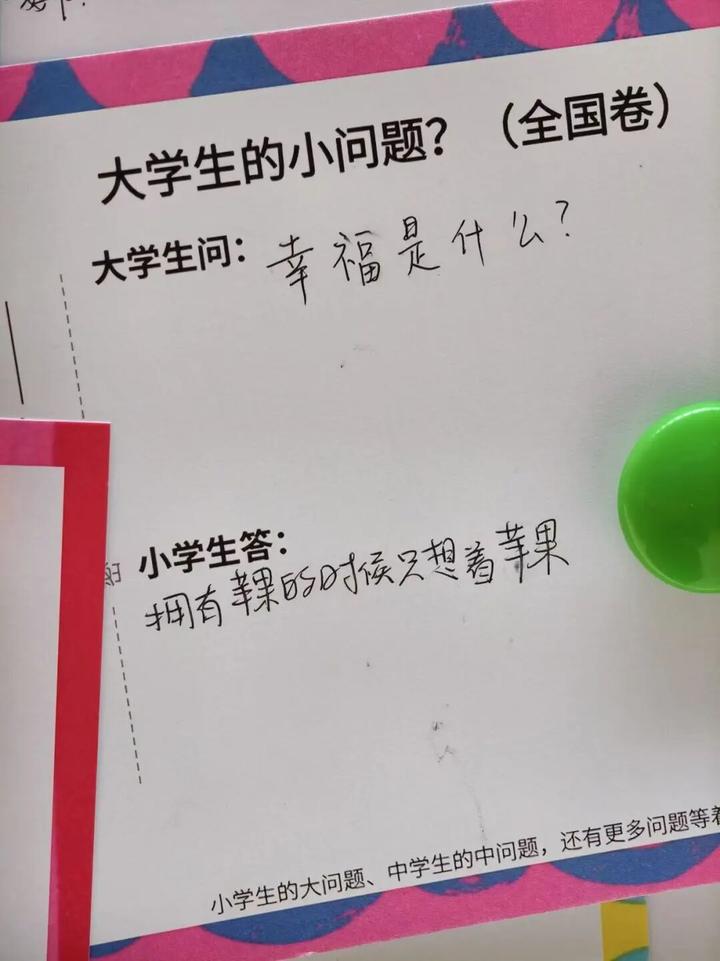 大学生的小问题?（全国卷）
大学生问：幸福是什么?
小学生答：
拥有苹果的时候只想着苹果
小学生的大问题、中学生的中问题，还有更多问题等着